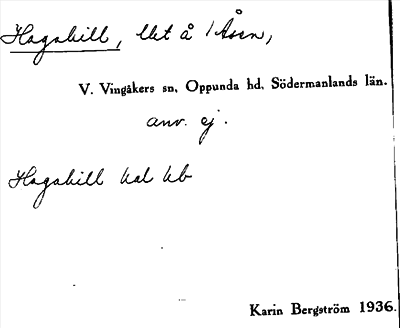 Hagahill, lht å /Åsen,
V. Vingåkers sn, Oppunda hd, Södermanlands län.
anv. ej.
Hagahill kal kb
Karin Bergström 1936.